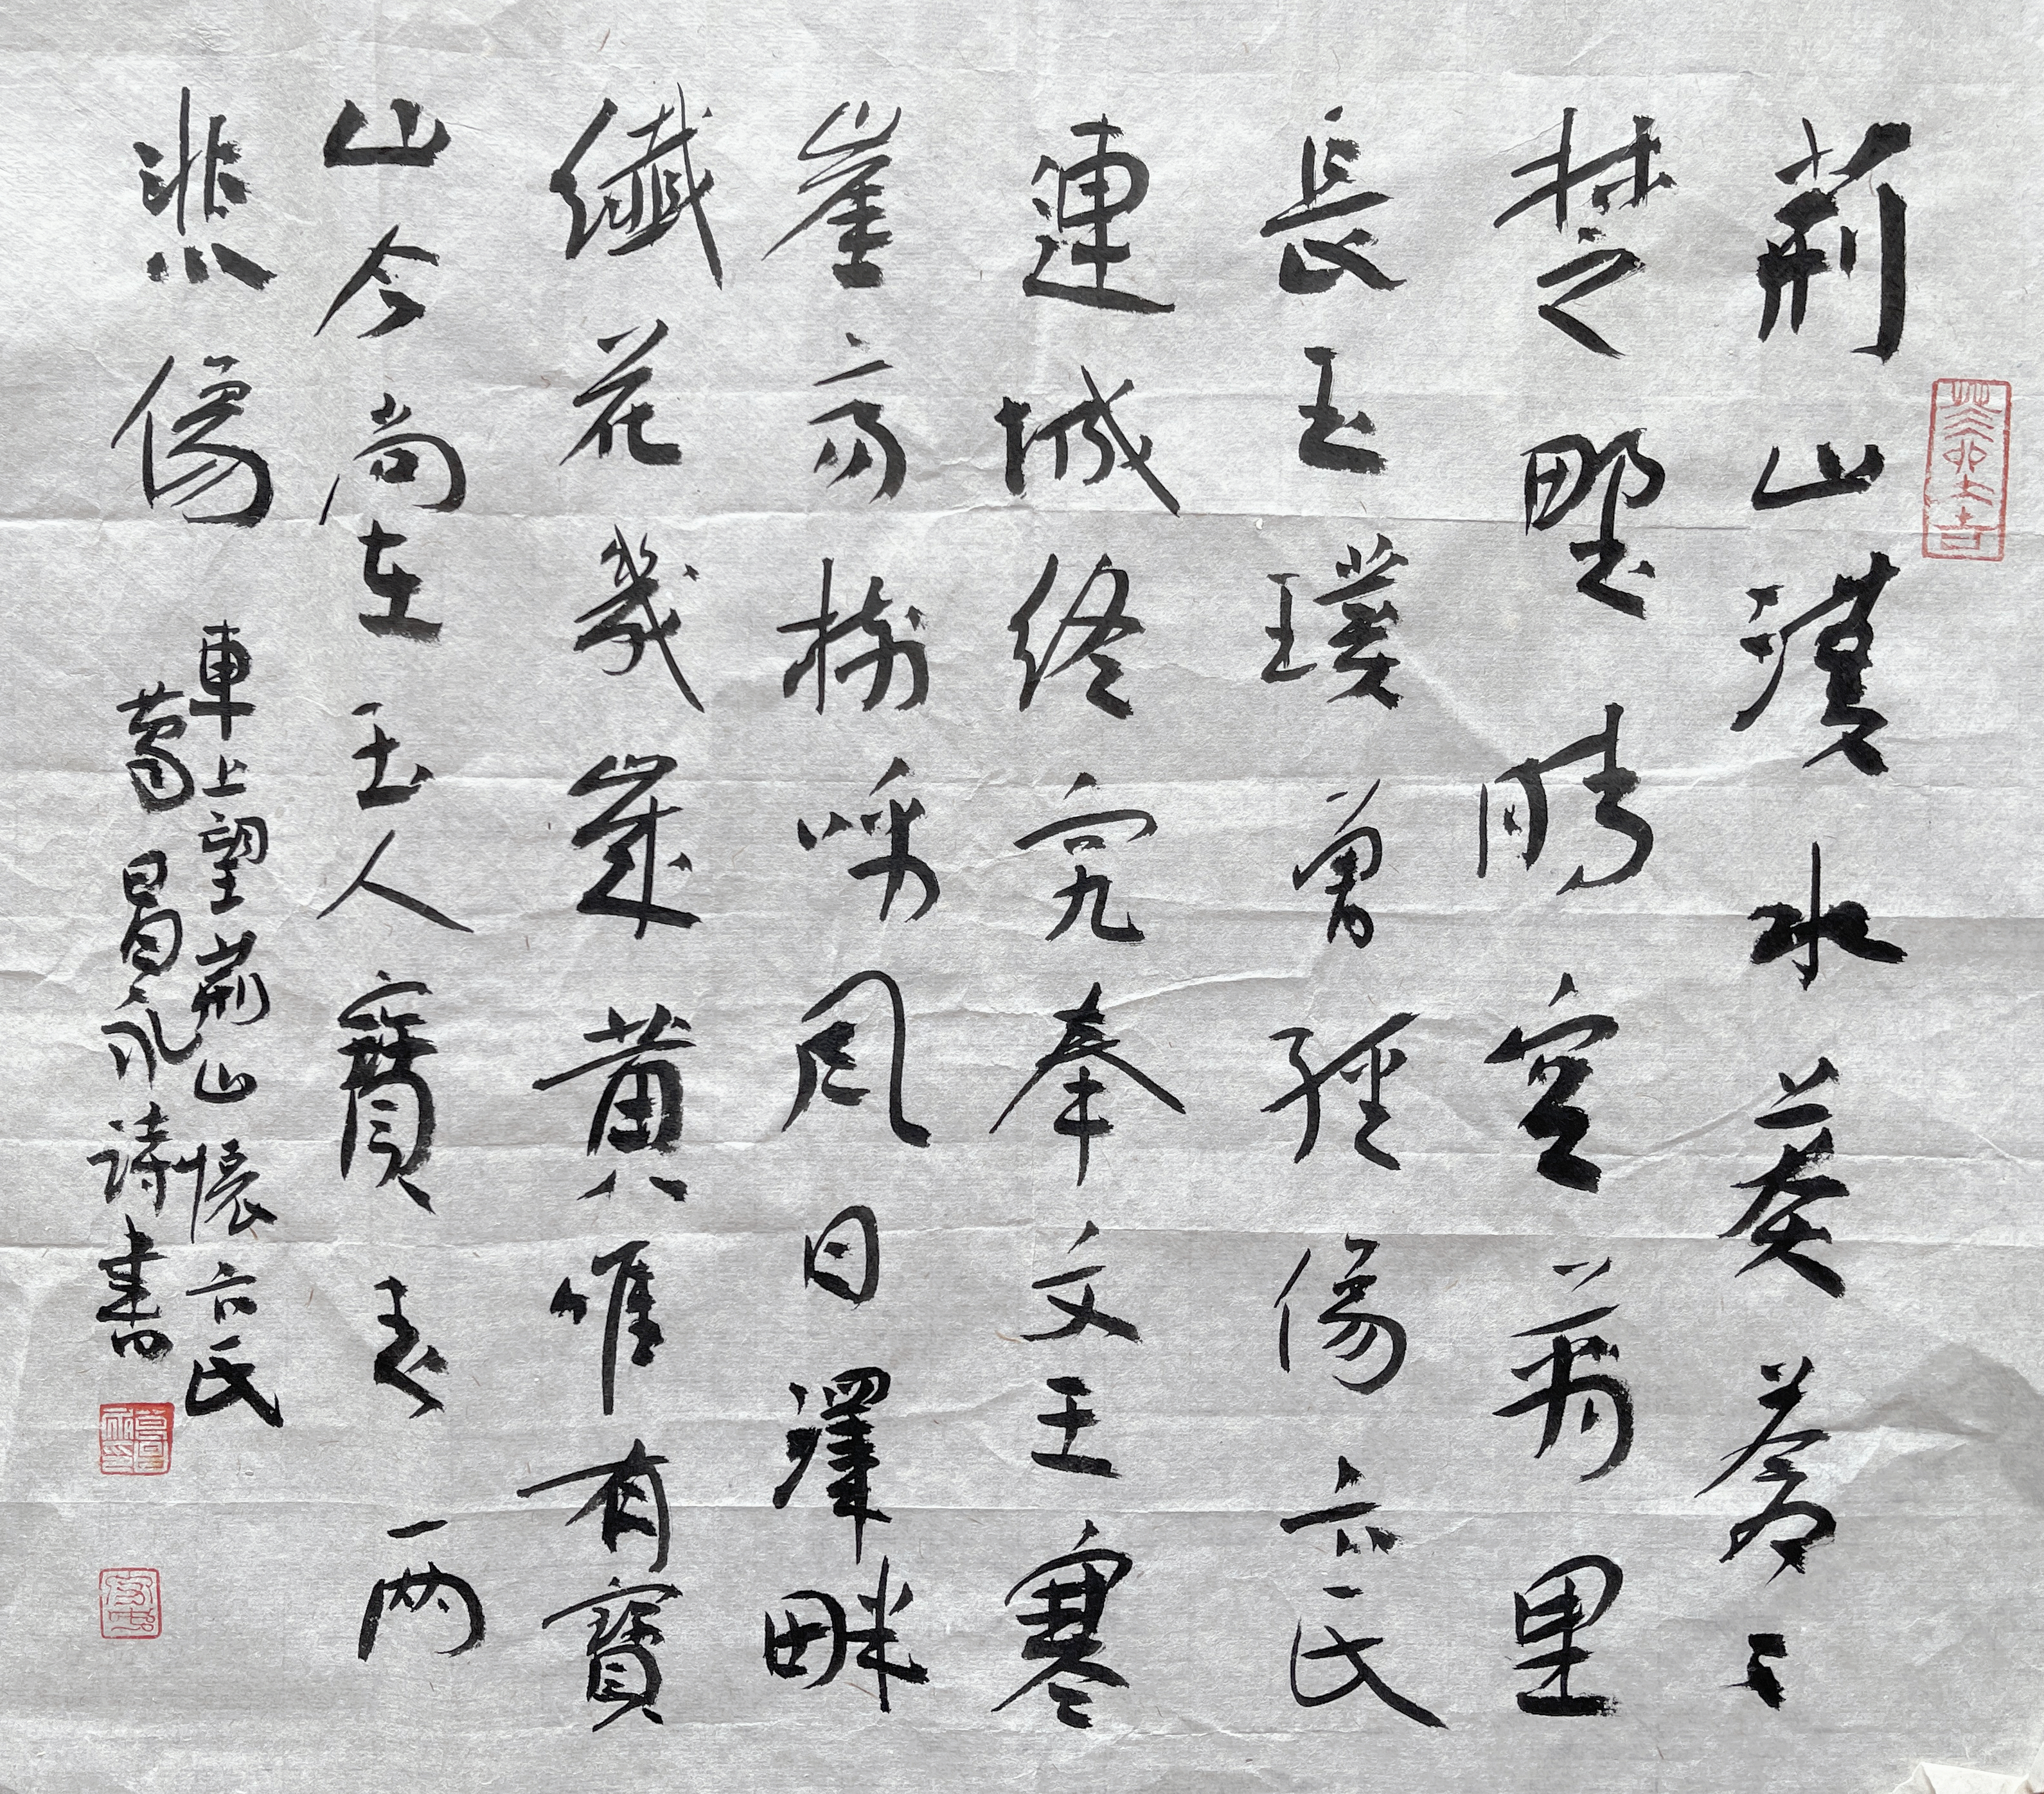 荊山漢水莽蒼々
楚野晴空萬里
長玉璞曾經傷卞氏
連城終究奉文王寒
崖高樹呼風日澤畔
纖花幾歲黃惟有寶
山今尚在玉人寶去兩
悲傷
車上望荊山懷卞氏
葛昌永詩書